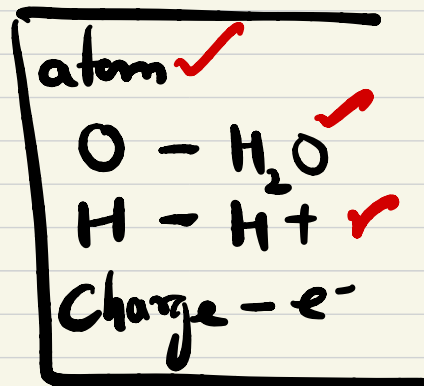 atom ✓
O – H₂O ✓
H – H+ ✓
Charge – e⁻